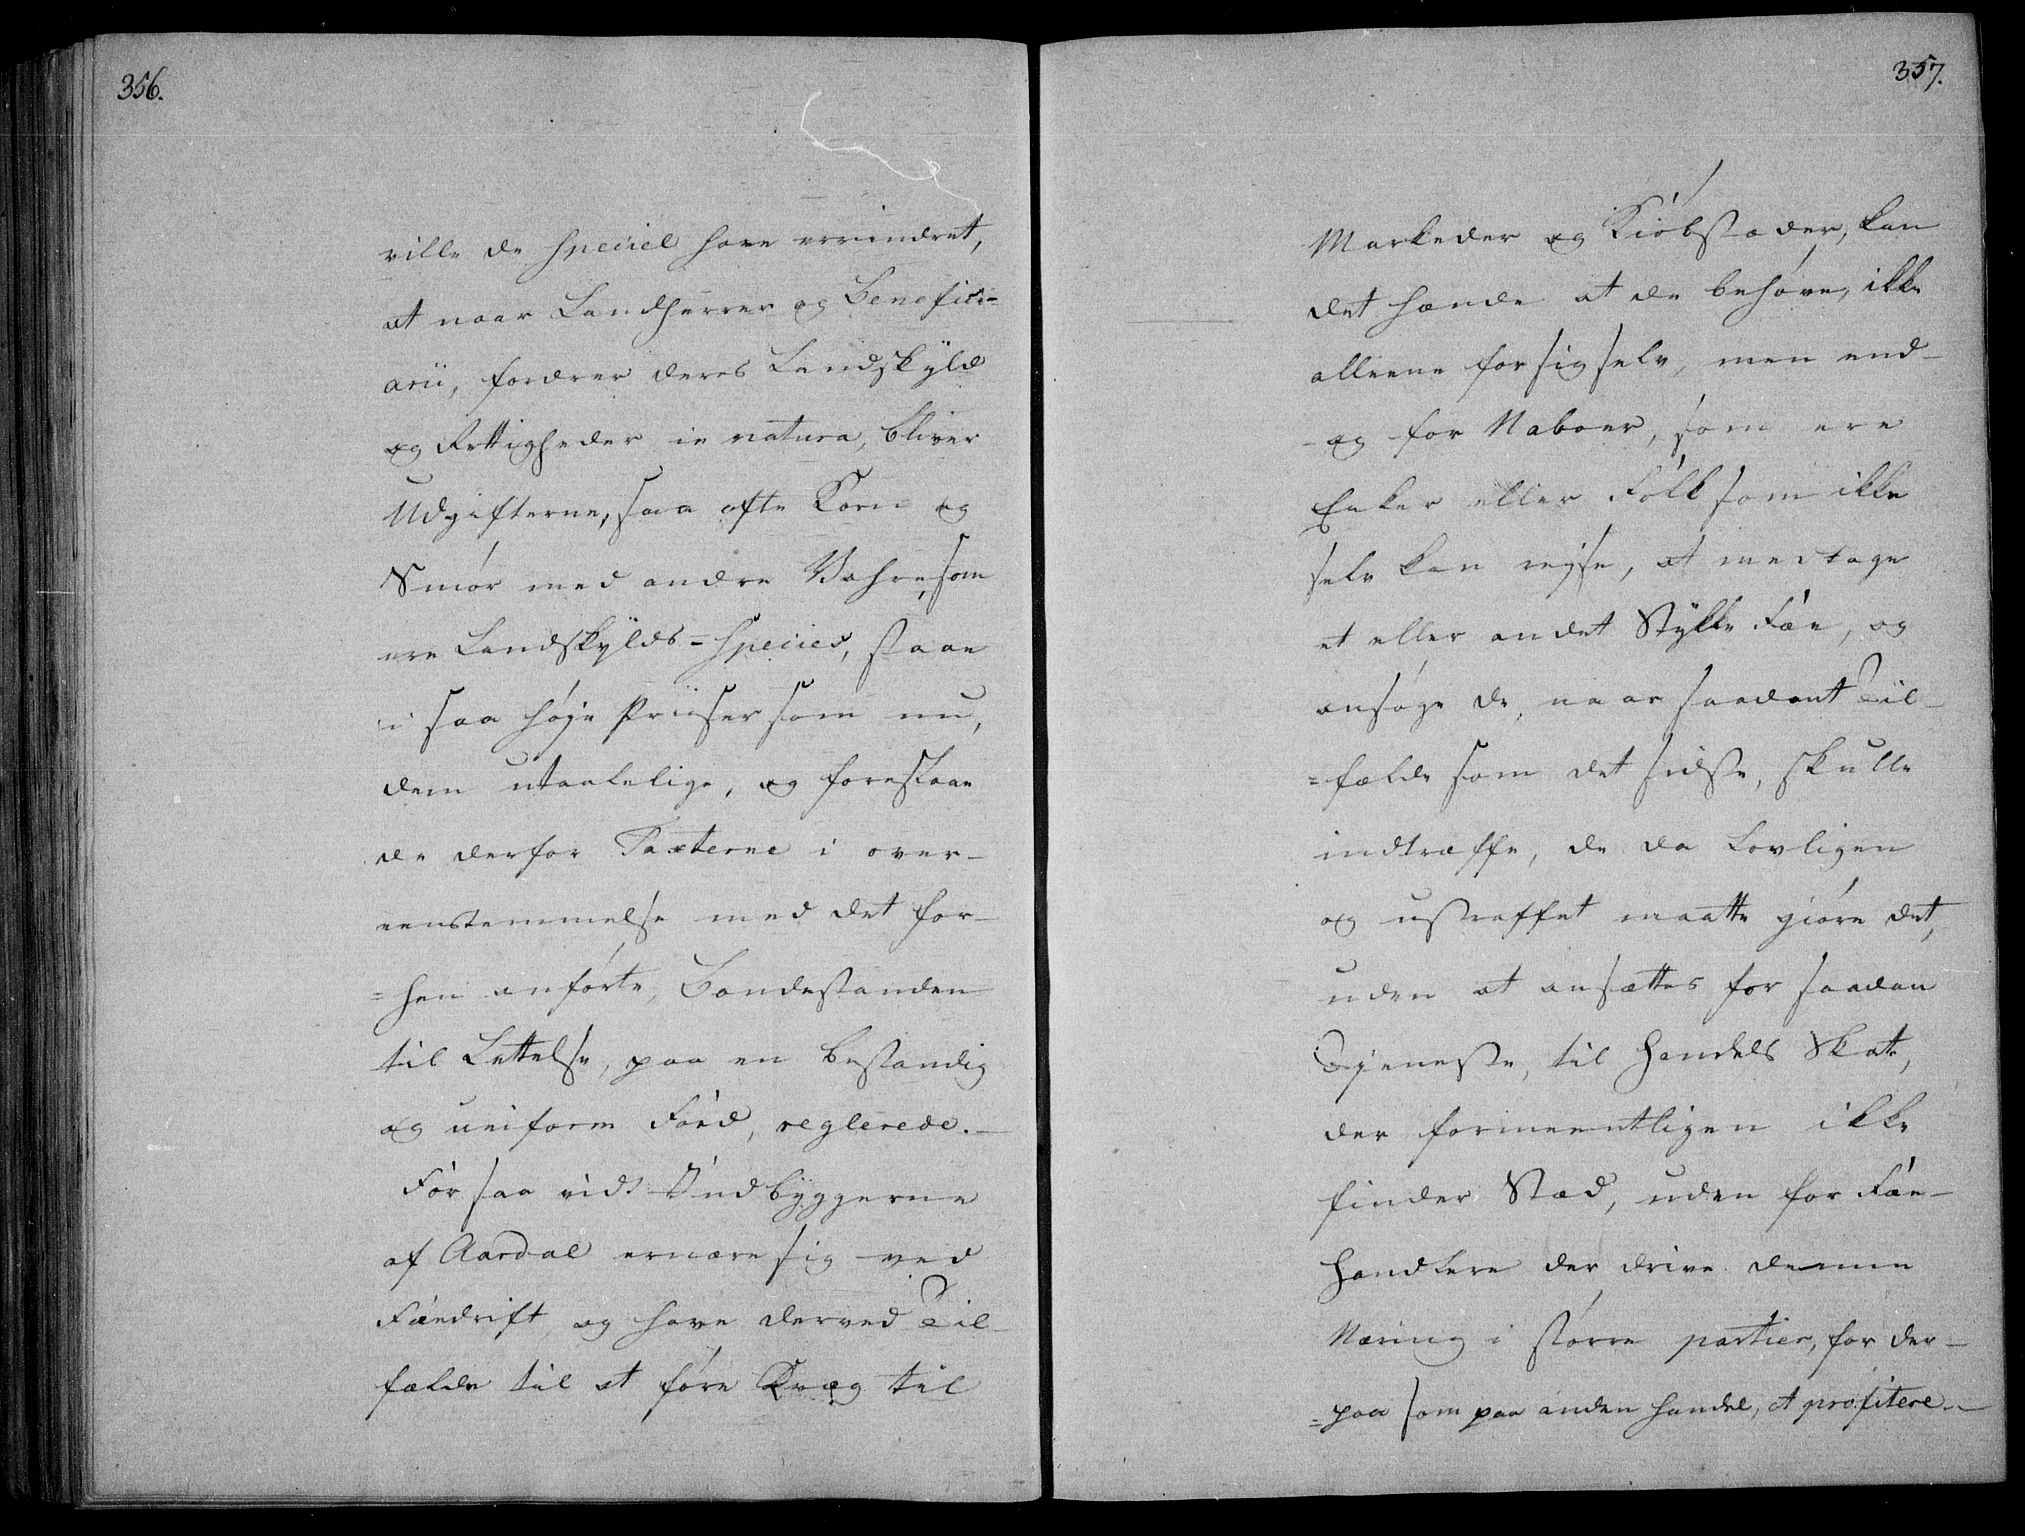 356.
ville de Speciel have errindret,
at naar Landherrer og Benefici-
arii, fordrer deres Landskyld
og Rettigheder in natura, bliver
Udgifterne, saa ofte Korn og
Smør med andre Vahre, som
ere Landskylds-Species, staae
i saa høye Priiser som nu,
dem utaalelige, og forestaae
de derfor Taxterne i over-
eenstemmelse med det for-
=hen anførte, Bondestanden
til Lettelse, paa en bestandig
og uniform Foed, reglerede.-
For saa vidt Indbyggerne
af Aardal ernære sig ved
Fæedrift, og have derved Til-
fælde til at føre Kvæg til
357.
Markeder og Kiøbstæder, kan
det hænde at de behøve, ikke
alleene for sig selv, men end-
-og for Naboer, som ere
Enker eller Folk som ikke
selv kan reyse, at medtage
et eller andet Stykke Fæe, og
ansøge de, naar saadant Til-
=fælde som det sidste, skulle
indtræffe, de da Lovligen
og ustraffet maatte giøre det,
uden at ansættes for saadan
Tieneste, til Handels Skat,
der formeentligen ikke
finder Stæd, uden for Fæe-
Handlere der drive denne
Næring i større partier, for der-
=paa som paa anden Handel, at profitere.-